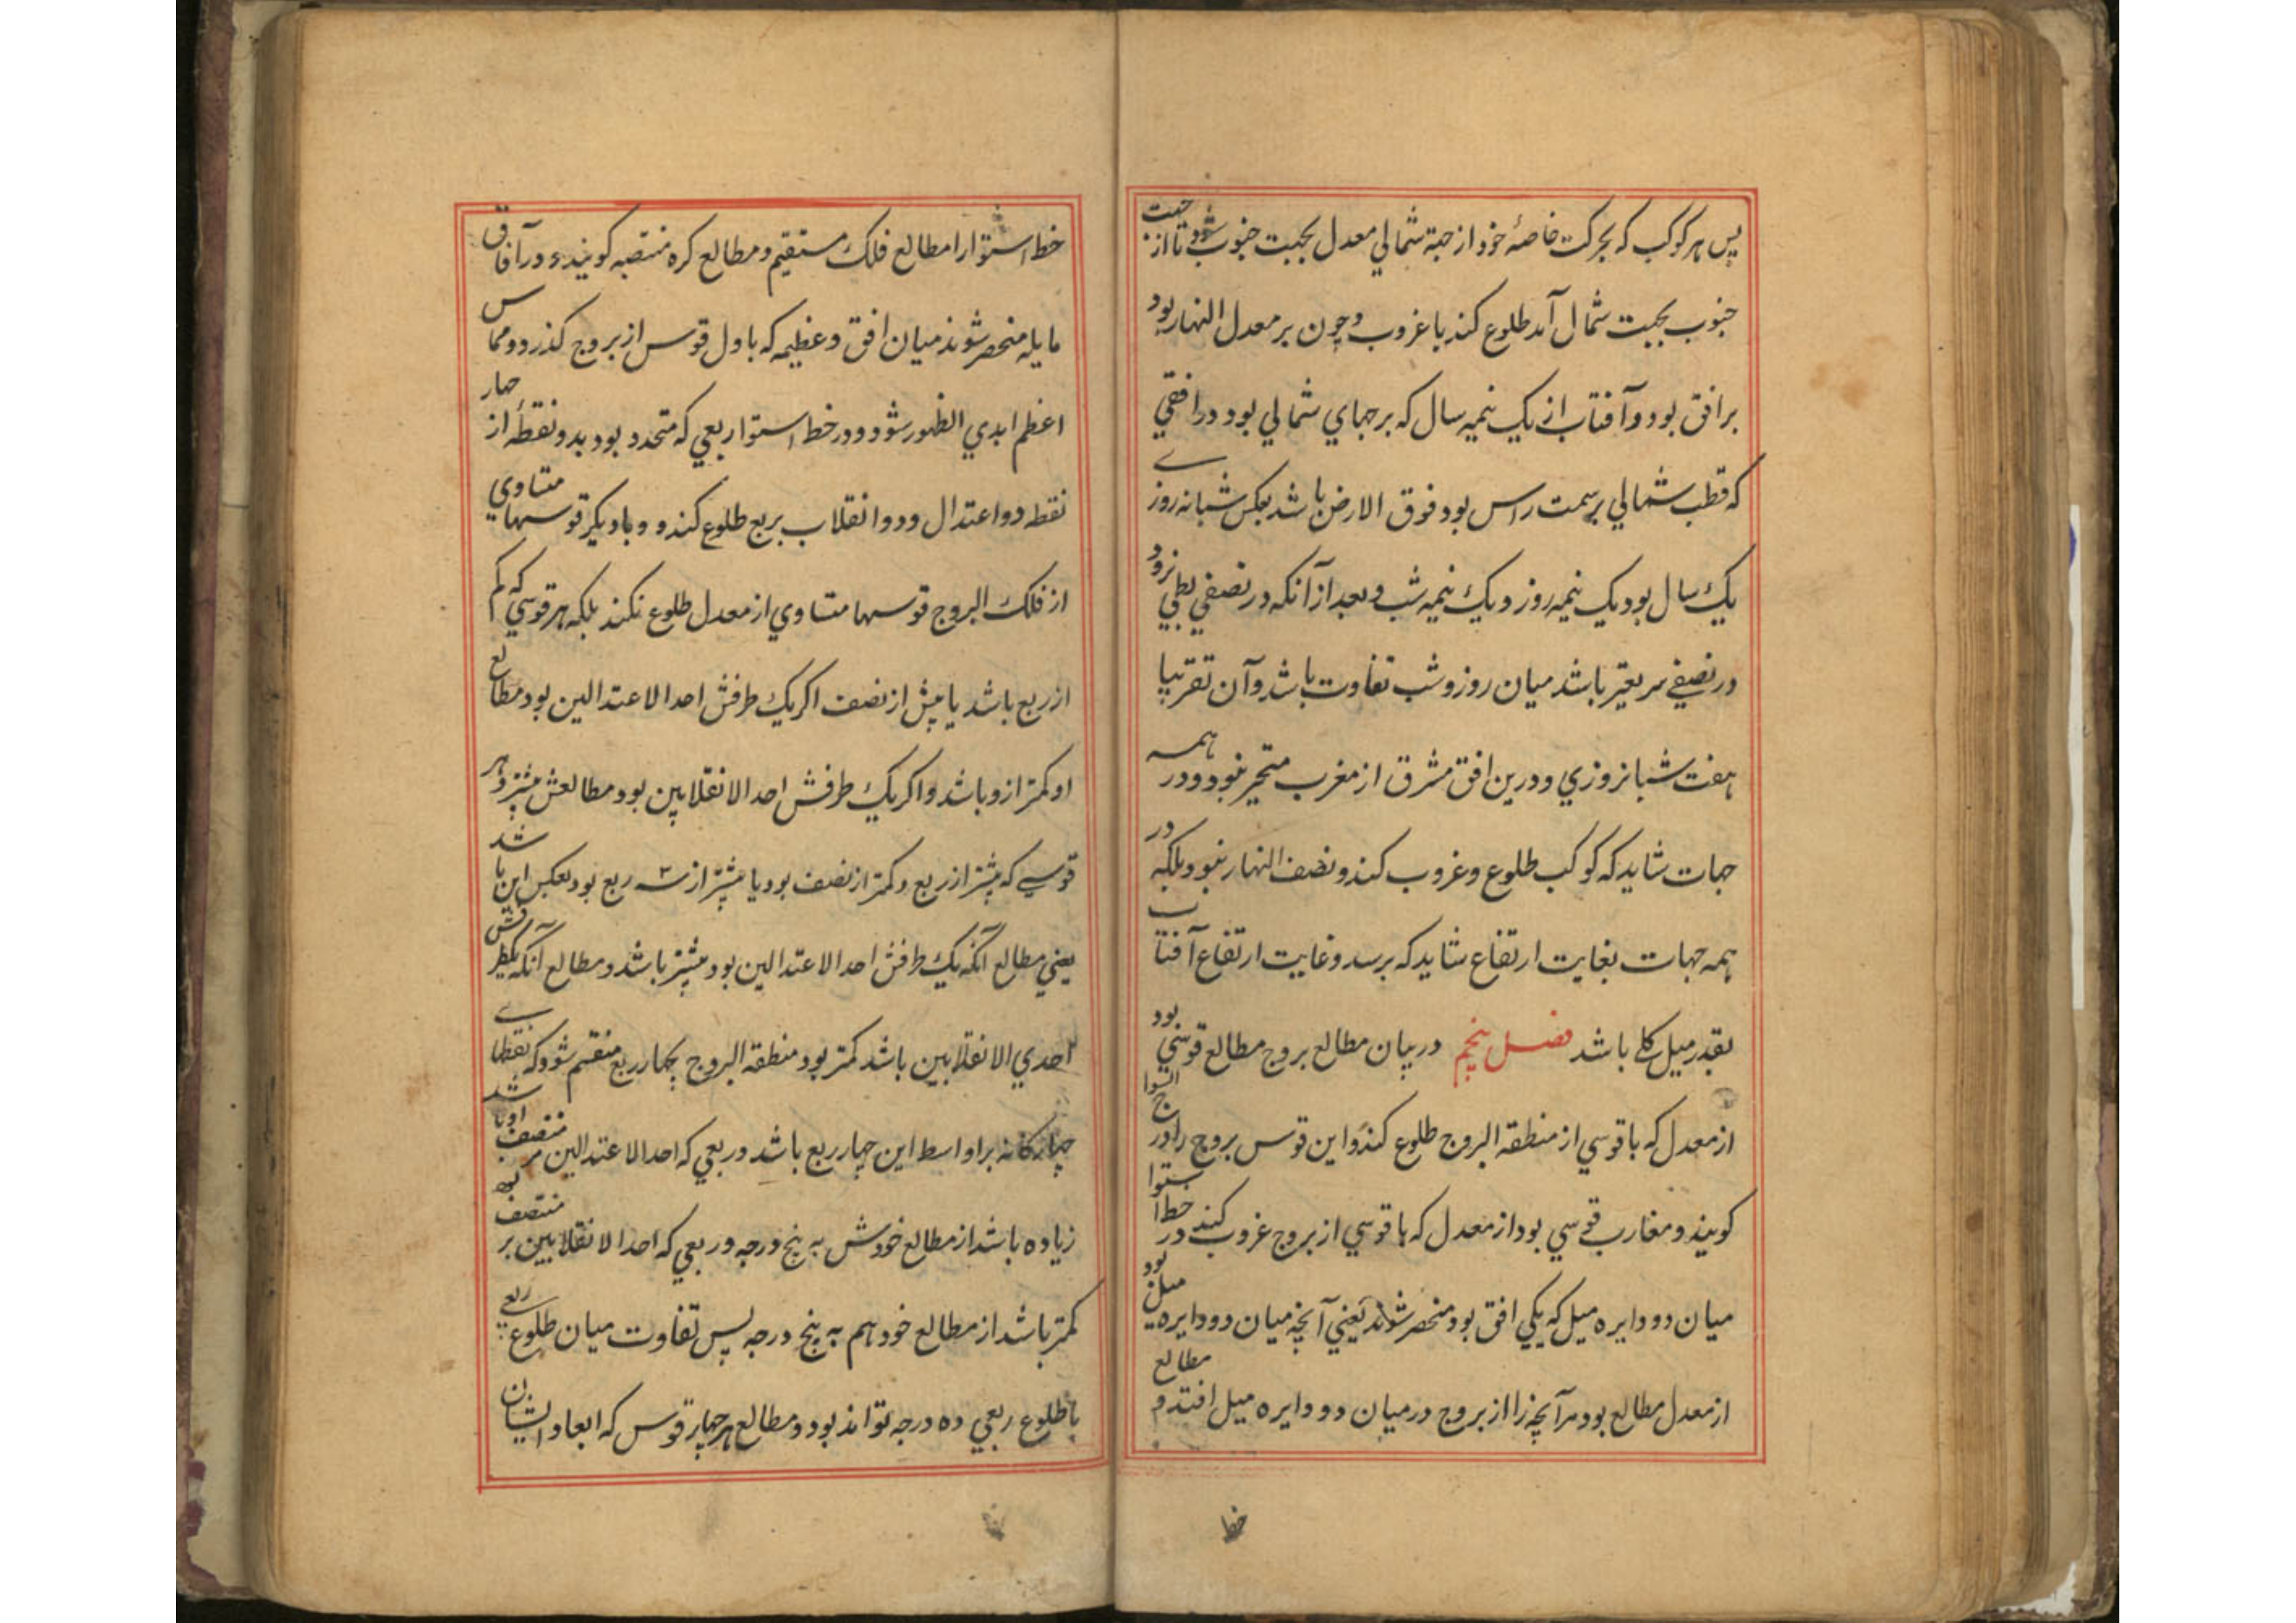 پس هر کوکب که بحرکت خاصهٔ خود از جهة شمالي معدل بجهت جنوب شود تا از جهت
جنوب بجهت شمال آمد طلوع کند یا غروب و چون بر معدل النهار بود
بر افق بود و آفتاب از یک نیمه سال که برجهاي شمالي بود در افقي
که قطب شمالي بر سمت راس بود فوق الارض باشد بعکس شبانه روزے
یک سال بود یک نیمه روز و یک نیمه شب و بعد از آنکه در نصفي بطي ترود
در نصفے سریعتر باشد میان روز و شب تفاوت باشد و آن تقریبا
هفت شبانروزي و درین افق مشرق از مغرب متحیر نبود و در همه
جهات شاید که کوکب طلوع و غروب کند و نصف النهار نبود بلکه در
همه جهات بغایت ارتفاع شاید که برسد و غایت ارتفاع آفتاب
بقدر میل کلے باشد فصل پنجم در بیان مطالع بروج مطالع قوسي بود
از معدل که با قوسي از منطقه البروج طلوع کند و این قوس بروج را درج السوا
کویند و مغارب قوسي بود از معدل که با قوسي از بروج غروب کند در خط استوا
میان دو دایره میل که یکي افق بود منحصر شوند یعني آنچه میان دو دایره میل بود
از معدل مطالع بود مر آنچه را از بروج در میان دو دایره میل افتد و مطالع
خط
خط استوا را مطالع فلک مستقیم و مطالع کره منتصبه کویند و در آفاق
مایله منحصر شوند میان افق و عظیمه که باول قوس از بروج کذرد و مماس
اعظم ابدي الظهور شود و در خط استوا ربعي که متحدد بود بدو نقطهٔ از چهار
نقطه دو اعتدال و دو انقلاب بربع طلوع کند و با دیکر قوسهاے متساوي
از فلک البروج قوسها متساوي از معدل طلوع نکند بلکه هر قوسي که کم
از ربع باشد یا بیش از نصف اکر یک طرفش احد الاعتدالین بود مطالع
او کمتر ازو باشد و اکر یک طرفش احد الانقلابین بود مطالعش بیشتر و هر
قوسے که بیشتر از ربع و کمتر از نصف بود یا بیشتر از سه ربع بود بعکس این باشد
یعني مطالع آنکه یک طرفش احد الاعتدالین بود بیشتر باشد و مطالع آنکه یکطرفش
احدي الانقلابین باشد کمتر بود منطقه البروج بچهار ربع منقسم شود که نقطهاے
چهارکانه بر اواسط این چهار ربع باشد و ربعي که احد الاعتدالین بر منتصف او باشد
زیاده باشد از مطالع خودش به پنج درجه و ربعي که احد الانقلابین بر منتصف بود
کمتر باشد از مطالع خود هم به پنج درجه پس تفاوت میان طلوع ربعے
با طلوع ربعي ده درجه تواند بود و مطالع هر چهار قوس که ابعاد ایشان